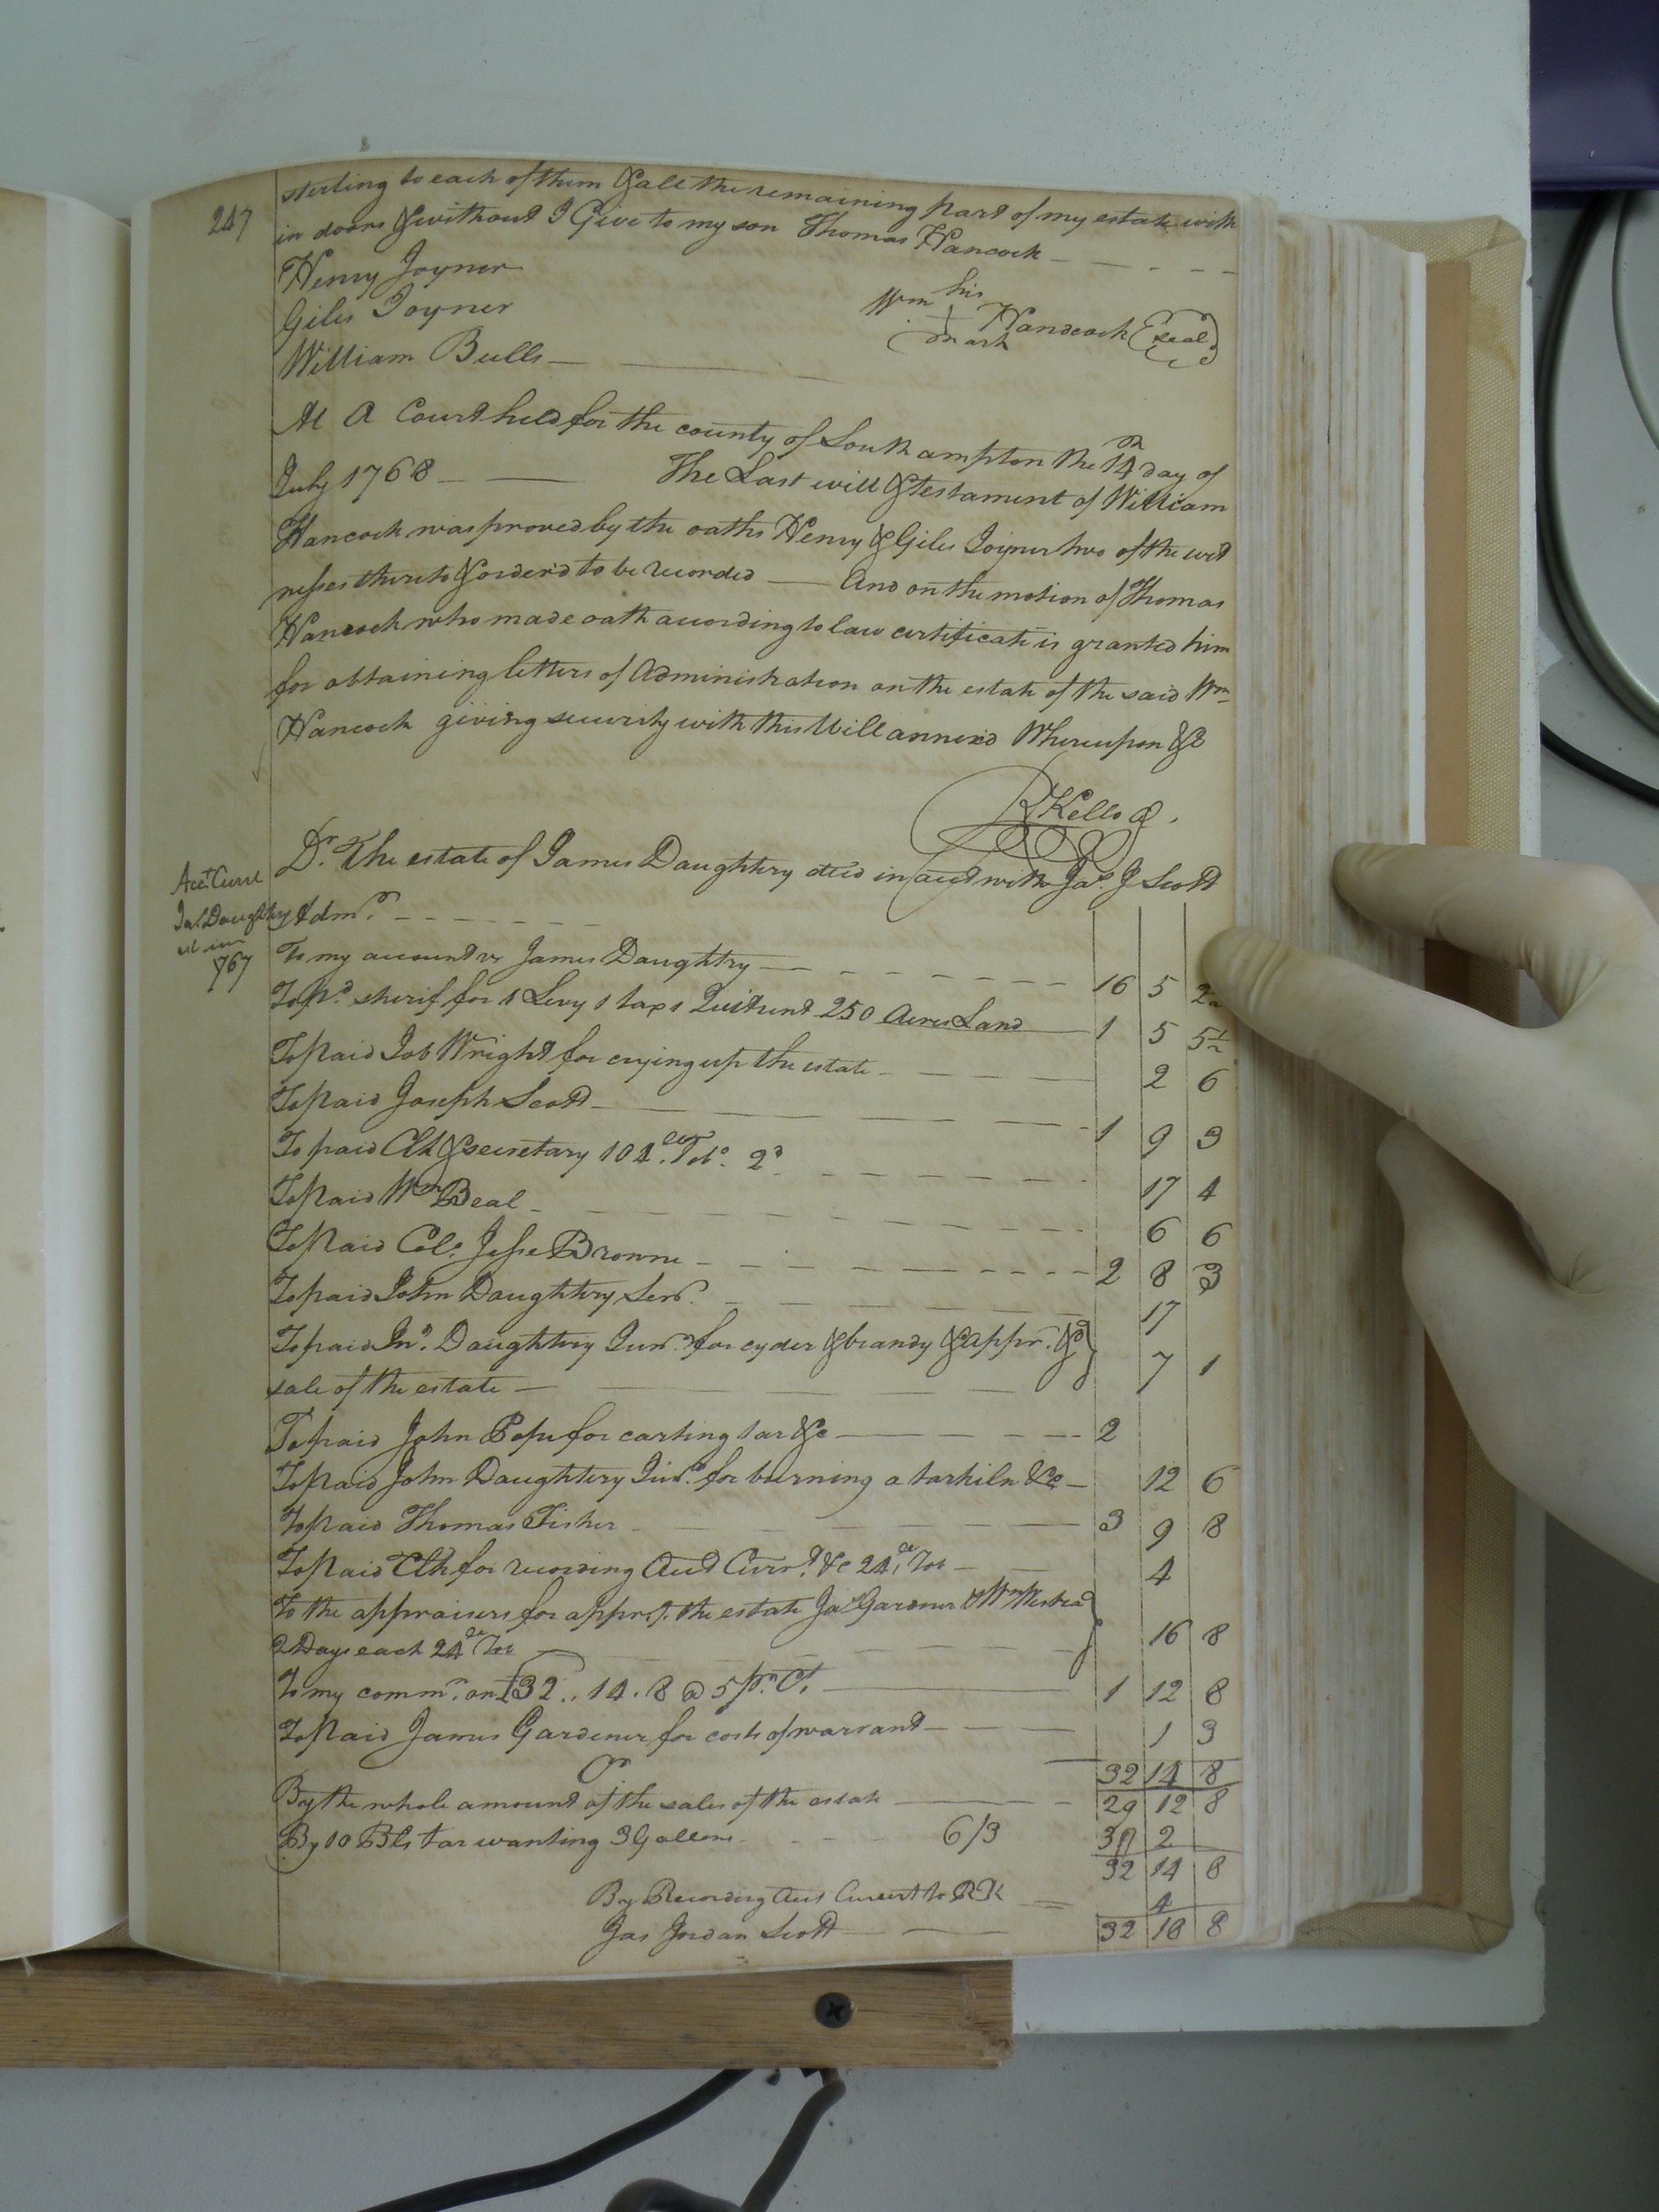 247
sterling to each of them & all the remaining part of my estate with
in doors & without I Give to my son Thomas Hancock
Henry Joyner
Giles Joyner
William Bulls
Wm his Handcock (seal)
mark
At A Court held for the county of Southampton the 14th day of
July 1768 The Last will & testament of William
Hancock was proved by the oaths Henry & Giles Joyner two of the wit
nesses thereto & order'd to be recorded And on the motion of Thomas
Hancock who made oath according to law certificate is granted him
for obtaining letters of Administration on the estate of the said Wm
Hancock giving security with this Will annex'd Whereupon &c
R Kello
Acct. Curr
Jas. Daughtry
767
Dr. The estate of James Daughtry dec'd in acct with Jas. J Scott
Admr.
To my account vs James Daughtry 16 5
To pd. sherif for 1 Levy 1 tax 1 Quitrent 250 Acres Land 1 5 5½
To paid Job Wright for crying up the estate 2 6
To paid Joseph Scott 1 9 3
To paid Clk & secretary 104 Tobo. 17 4
To paid Wm Beal 6 6
To paid Colo. Jesse Browne 2 8 3
To paid John Daughtry Senr. 17
To paid Jno. Daughtry Junr. for cyder & brandy & appr. &
sale of the estate 7 1
To paid John Pope for carting tar &c 2
To paid John Daughtry Junr. for burning a tarkiln &c 12 6
To paid Thomas Fisher 3 9 8
To paid Clk for recording Acct Curr. &c 24 Tob 4
To the appraisers for apprs. the estate Jas Gardner & Wm Westra
2 Days each 24 Tob 16 8
To my commn. on £32..14.8 @ 5 pr. Ct. 1 12 8
To paid James Gardener for costs of warrant 1 3
32 14 8
Cr
By the whole amount of the sales of the estate 29 12 8
By 10 Bls tar wanting 3 Gallons 6/3 3 2
32 14 8
By Recording Acct Current to RK 4
Jas Jordan Scott 32 18 8